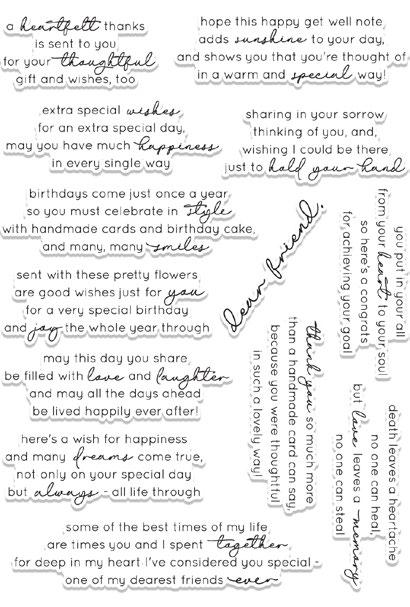 a heartfelt thanks
is sent to you
for your thoughtful
gift and wishes, too
hope this happy get well note
adds sunshine to your day,
and shows you that you're thought of
in a warm and special way!
extra special wishes
for an extra special day,
may you have much happiness
in every single way
sharing in your sorrow
thinking of you, and,
wishing I could be there
just to hold your hand
birthdays come just once a year
so you must celebrate in style
with handmade cards and birthday cake,
and many, many smiles
dear friend,
you put in your all
from your heart to your soul
so here's a congrats
for achieving your goal
sent with these pretty flowers
are good wishes just for you
for a very special birthday
and joy the whole year through
thank you so much more
than a handmade card can say,
because you were thoughtful
in such a lovely way!
may this day you share,
be filled with love and laughter
and may all the days ahead
be lived happily ever after!
death leaves a heartache
no one can heal,
but love leaves a memory
no one can steal
here's a wish for happiness
and many dreams come true,
not only on your special day
but always - all life through
some of the best times of my life
are times you and I spent together
for deep in my heart I've considered you special -
one of my dearest friends ever